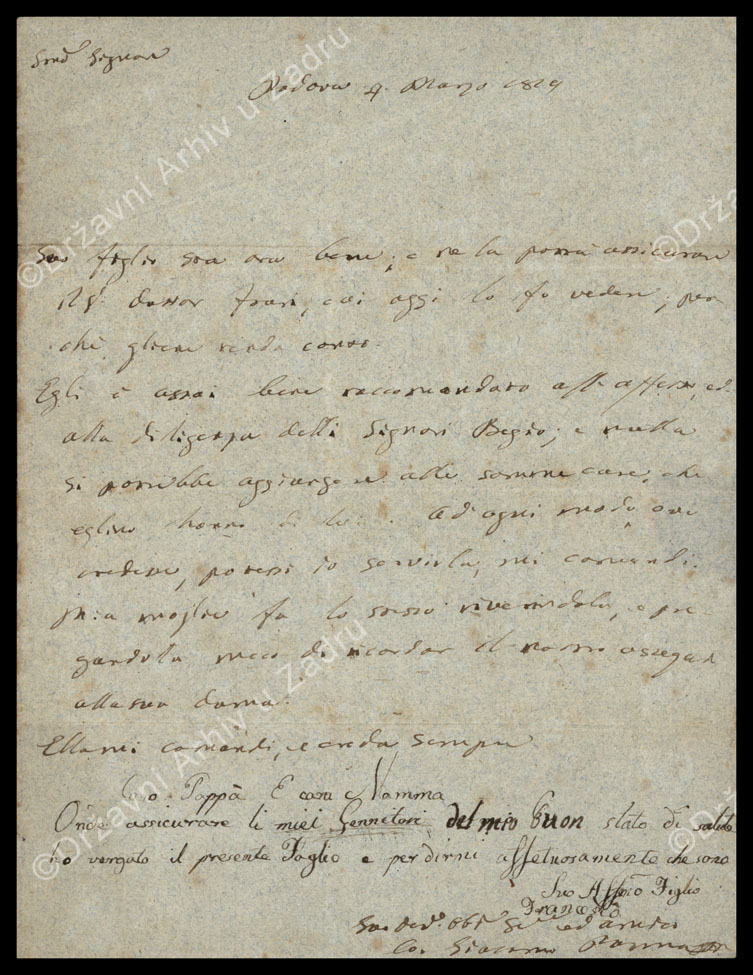 Signor
Padova 9. Marzo 1819
Suo figlio sta ora bene; e ne la potrà assicurare
il Sr. dottor cui oggi lo fo vedere, per
chè gliene renda conto.
Egli è assai bene raccomandato all' ed
alla diligenza delli Signori e nulla
si potrebbe aggiungere alle somme cure, che
eglino hanno di lui. Ad ogni modo, ove
credesse, potessi io servirla, mi comandi.
Mia moglie fa lo stesso riverendola, e pre
gandola meco di ricordar il nostro
alla sua dama.
Ella mi comandi, e creda sempre
Caro Pappà E cara Mamma
Onde assicurare li miei Gennitori del mio Buon stato di salute
ho vergato il presente Foglio e per dirmi affetuosamente che sono
Suo Affmo Figlio
Francesco
Suo ed amico
Co. Giacomo
©Državni Arhiv u Zadru
©Državni Arhiv u Zadru